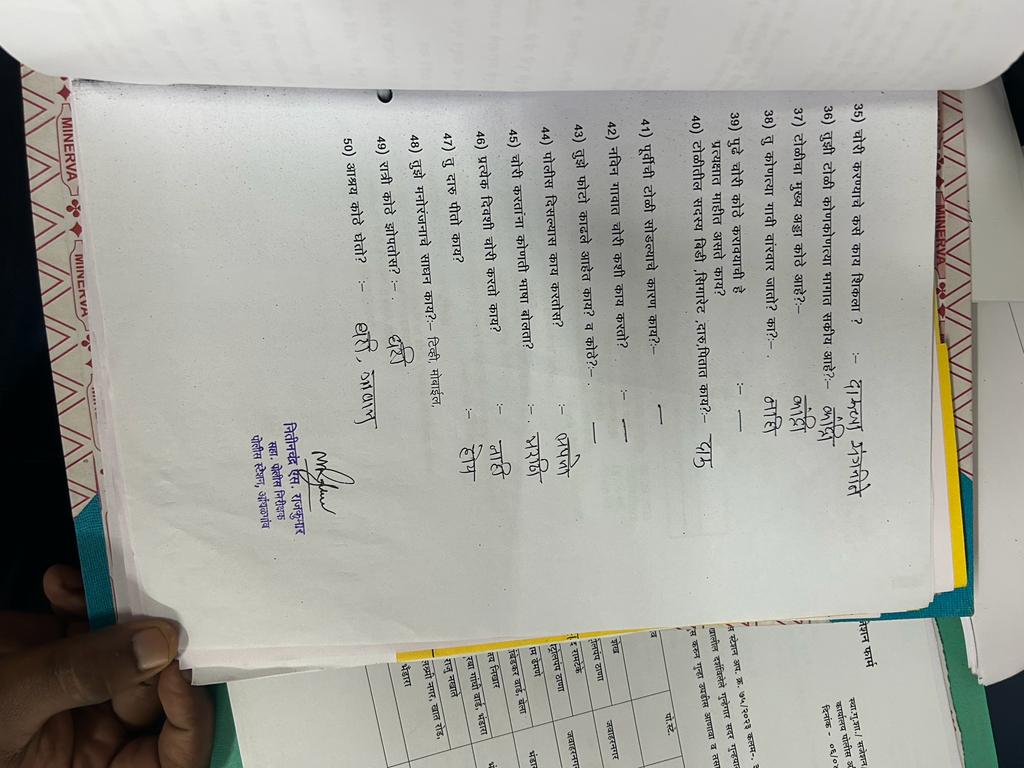 MINERVA
35) चोरी करण्याचे कसे काय शिकला ? :- दारूच्या संगतीने
36) तुझी टोळी कोणकोणत्या भागात सकीय आहे?:- कांद्री
37) टोळीचा मुख्य अड्डा कोठे आहे?:- कांद्री
38) तु कोणत्या गावी वांरवार जातो? का?:- . नाही
39) पुढे चोरी कोठे करावयाची हे :- —
प्रत्यक्षात माहीत असते काय?
40) टोळीतील सदस्य बिडी ,सिगारेट ,दारु,पितात काय?:- दारू
41) पूर्वीची टोळी सोडल्याचे कारण काय?:- —
42) नविन गावात चोरी कशी काय करतो? :- —
43) तुझे फोटो काढले आहेत काय? व कोठे?:- . —
44) पोलीस दिसल्यास काय करतोस? :- लपतो
45) चोरी करतांना कोणती भाषा बोलता? :- . मराठी
46) प्रत्येक दिवशी चोरी करतो काय? :- नाही
47) तु दारु पीतो काय? :- होय
48) तुझे मनोरंजनाचे साधन काय?:- टिव्ही, मोबाईल,
49) रात्री कोठे झोपतोस? :- . घरी
50) आश्रय कोठे घेतो? :- घरी, गावात
नितीनचंद्र एस. राजकुमार
सहा. पोलीस निरीक्षक
पोलीस स्टेशन, आंधळगांव
MINERVA MINERVA
फार्म
स्था.गु.शा./ सजेशन/
कार्यालय पोलीस
दिनांक - ०६/०४
स्टेशन अप. क्र. ७५/२०२३ कलम-.
दर्शविलेले गुन्हेगार सदर
करुन गुन्हा उघडीस आणावा व
पो.स्टे.
शेख
ठाणा
जवाहरनगर
रामटेके
ठाणा
डेमणे
वार्ड, बेला
निखार
गांधी वार्ड, भंडारा
राजु नखाते
नगर, खात रोड,
भंडारा